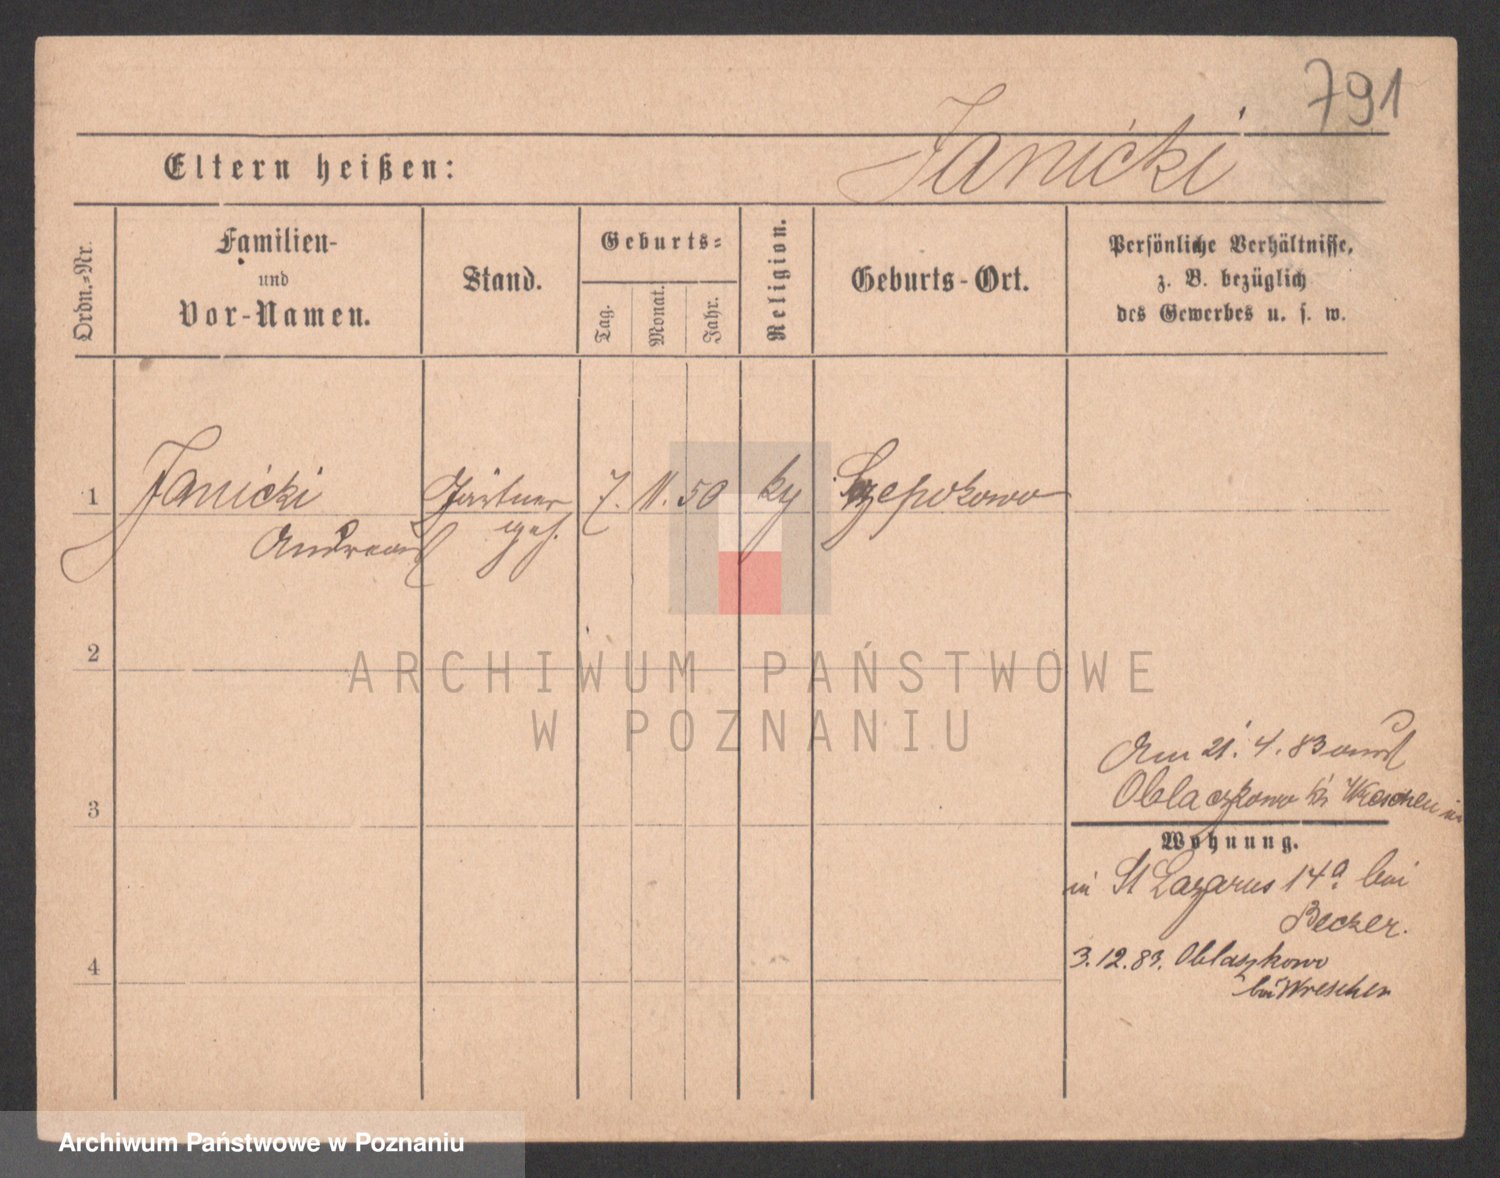 791
Janicki
Eltern heißen:
Ordn.-Nr.
Familien-
und
Vor-Namen.
Stand.
Geburts-
Tag.
Monat.
Jahr.
Religion.
Geburts-Ort.
Persönliche Verhältnisse,
z. B. bezüglich
des Gewerbes u. s. w.
1 Janicki Gärtner 7. 11. 50 Szepokowo
Andreas
2
ARCHIWUM PAŃSTWOWE
W POZNANIU
Am 21. 4. 83
3 Oblaczkowo Wreschen
Wohnung.
in St Lazarus 14a bei
Becker.
3.12.83. Oblaszkowo
4
bei Wreschen
Archiwum Państwowe w Poznaniu